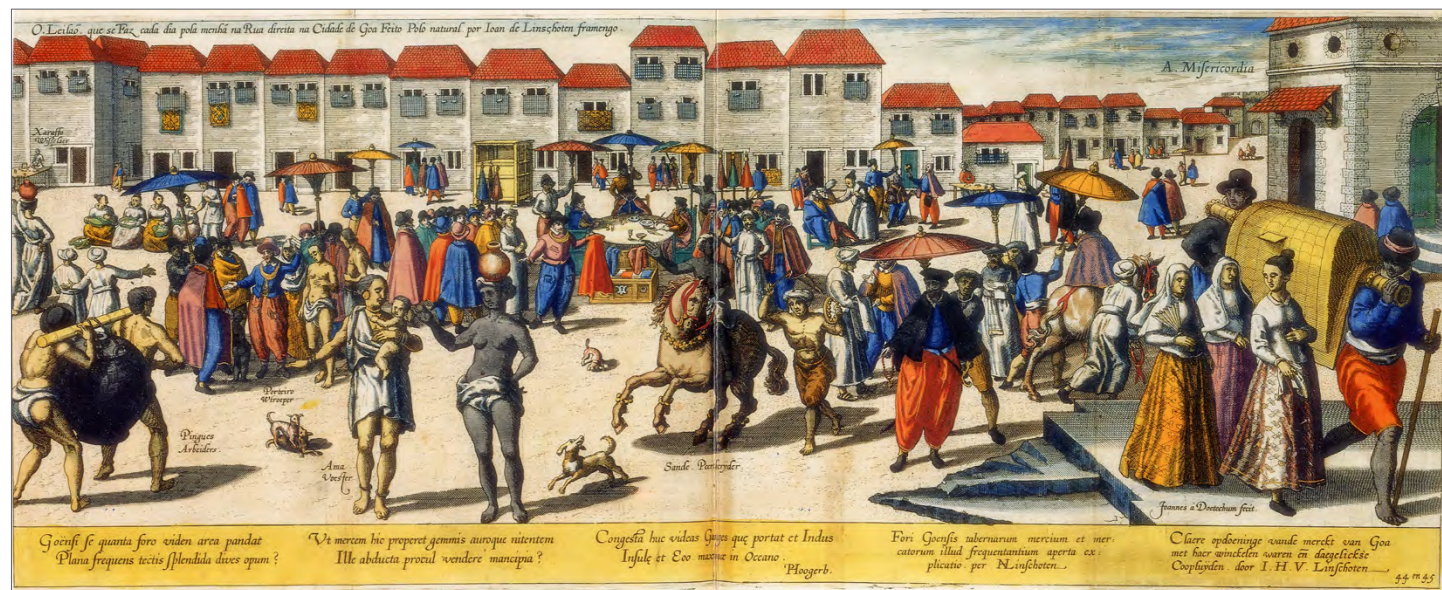 O. Leilaõ. que se Faz cada dia pola menhã na Rua direita na Cidade de Goa Feito Polo natural por Ioan de Linschoten framengo.
A. Misericordia
Xaraffo
Wisselaer
Porteiro
Wtroeper
Pingues
Arbeiders.
Ama
Voester.
Sande. Peertryder.
Joannes à Doetechum fecit.
Goënsi se quanta foro viden area pandat
Plana frequens tectis splendida dives opum?
Vt mercem hic properet gemmis auroque nitentem
Ille abducta procul vendere mancipia?
Congesta huc videas Ganges quę portat et Indus
Insulę et Eoo maxime in Oceano.
Hoogerb.
Fori Goensis tabernarum mercium et mer
catorum illud frequentantium aperta ex
plicatio per N. Linschoten
Claere opdoeninge vande merckt van Goa
met haer winckelen waren eñ daegelickse
Coopluyden. door I. H. V. Linschoten
44 m 45